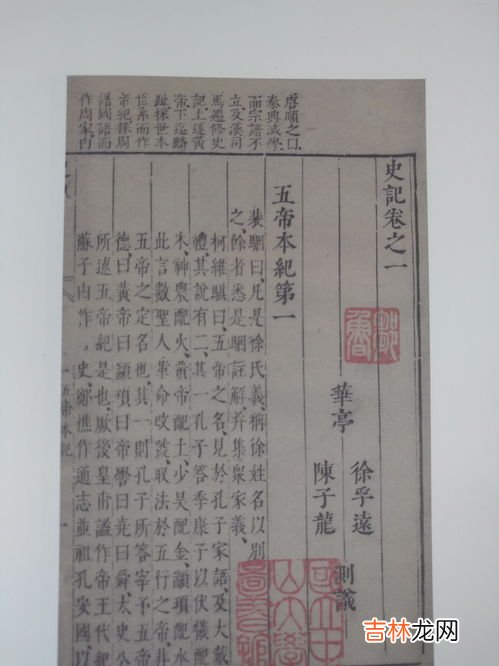 唐順之曰
秦興滅學
而宗譜不
立及漢司
馬遷修史
記上述黃
帝下迄麟
趾採世本
世系而作
帝紀採周
譜國語而
作周家
史記卷之一
華亭
徐孚遠
陳子龍
測議
五帝本紀第一
裴駰曰、凡是徐氏義、稱徐姓名以別
之、餘者悉是駰註解、幷集衆家義、
柯維騏曰、五帝之名、見於孔子家語、及大戴
禮、其說有二、其一孔子答季康子以伏犧配
木、神農配火、黃帝配土、少昊配金、顓頊配水、
此言數聖人革命改號取法於五行之帝、非
五帝之定名也、其一則孔子所答宰予五帝
德曰黃帝曰顓頊曰帝嚳曰堯曰舜、太史公
所述五帝紀是也、厥後皇甫謐作帝王代紀
蘇子由作 史、鄭樵作通志並祖孔安國以
五帝本紀
國立中
山大學
吉林龙网